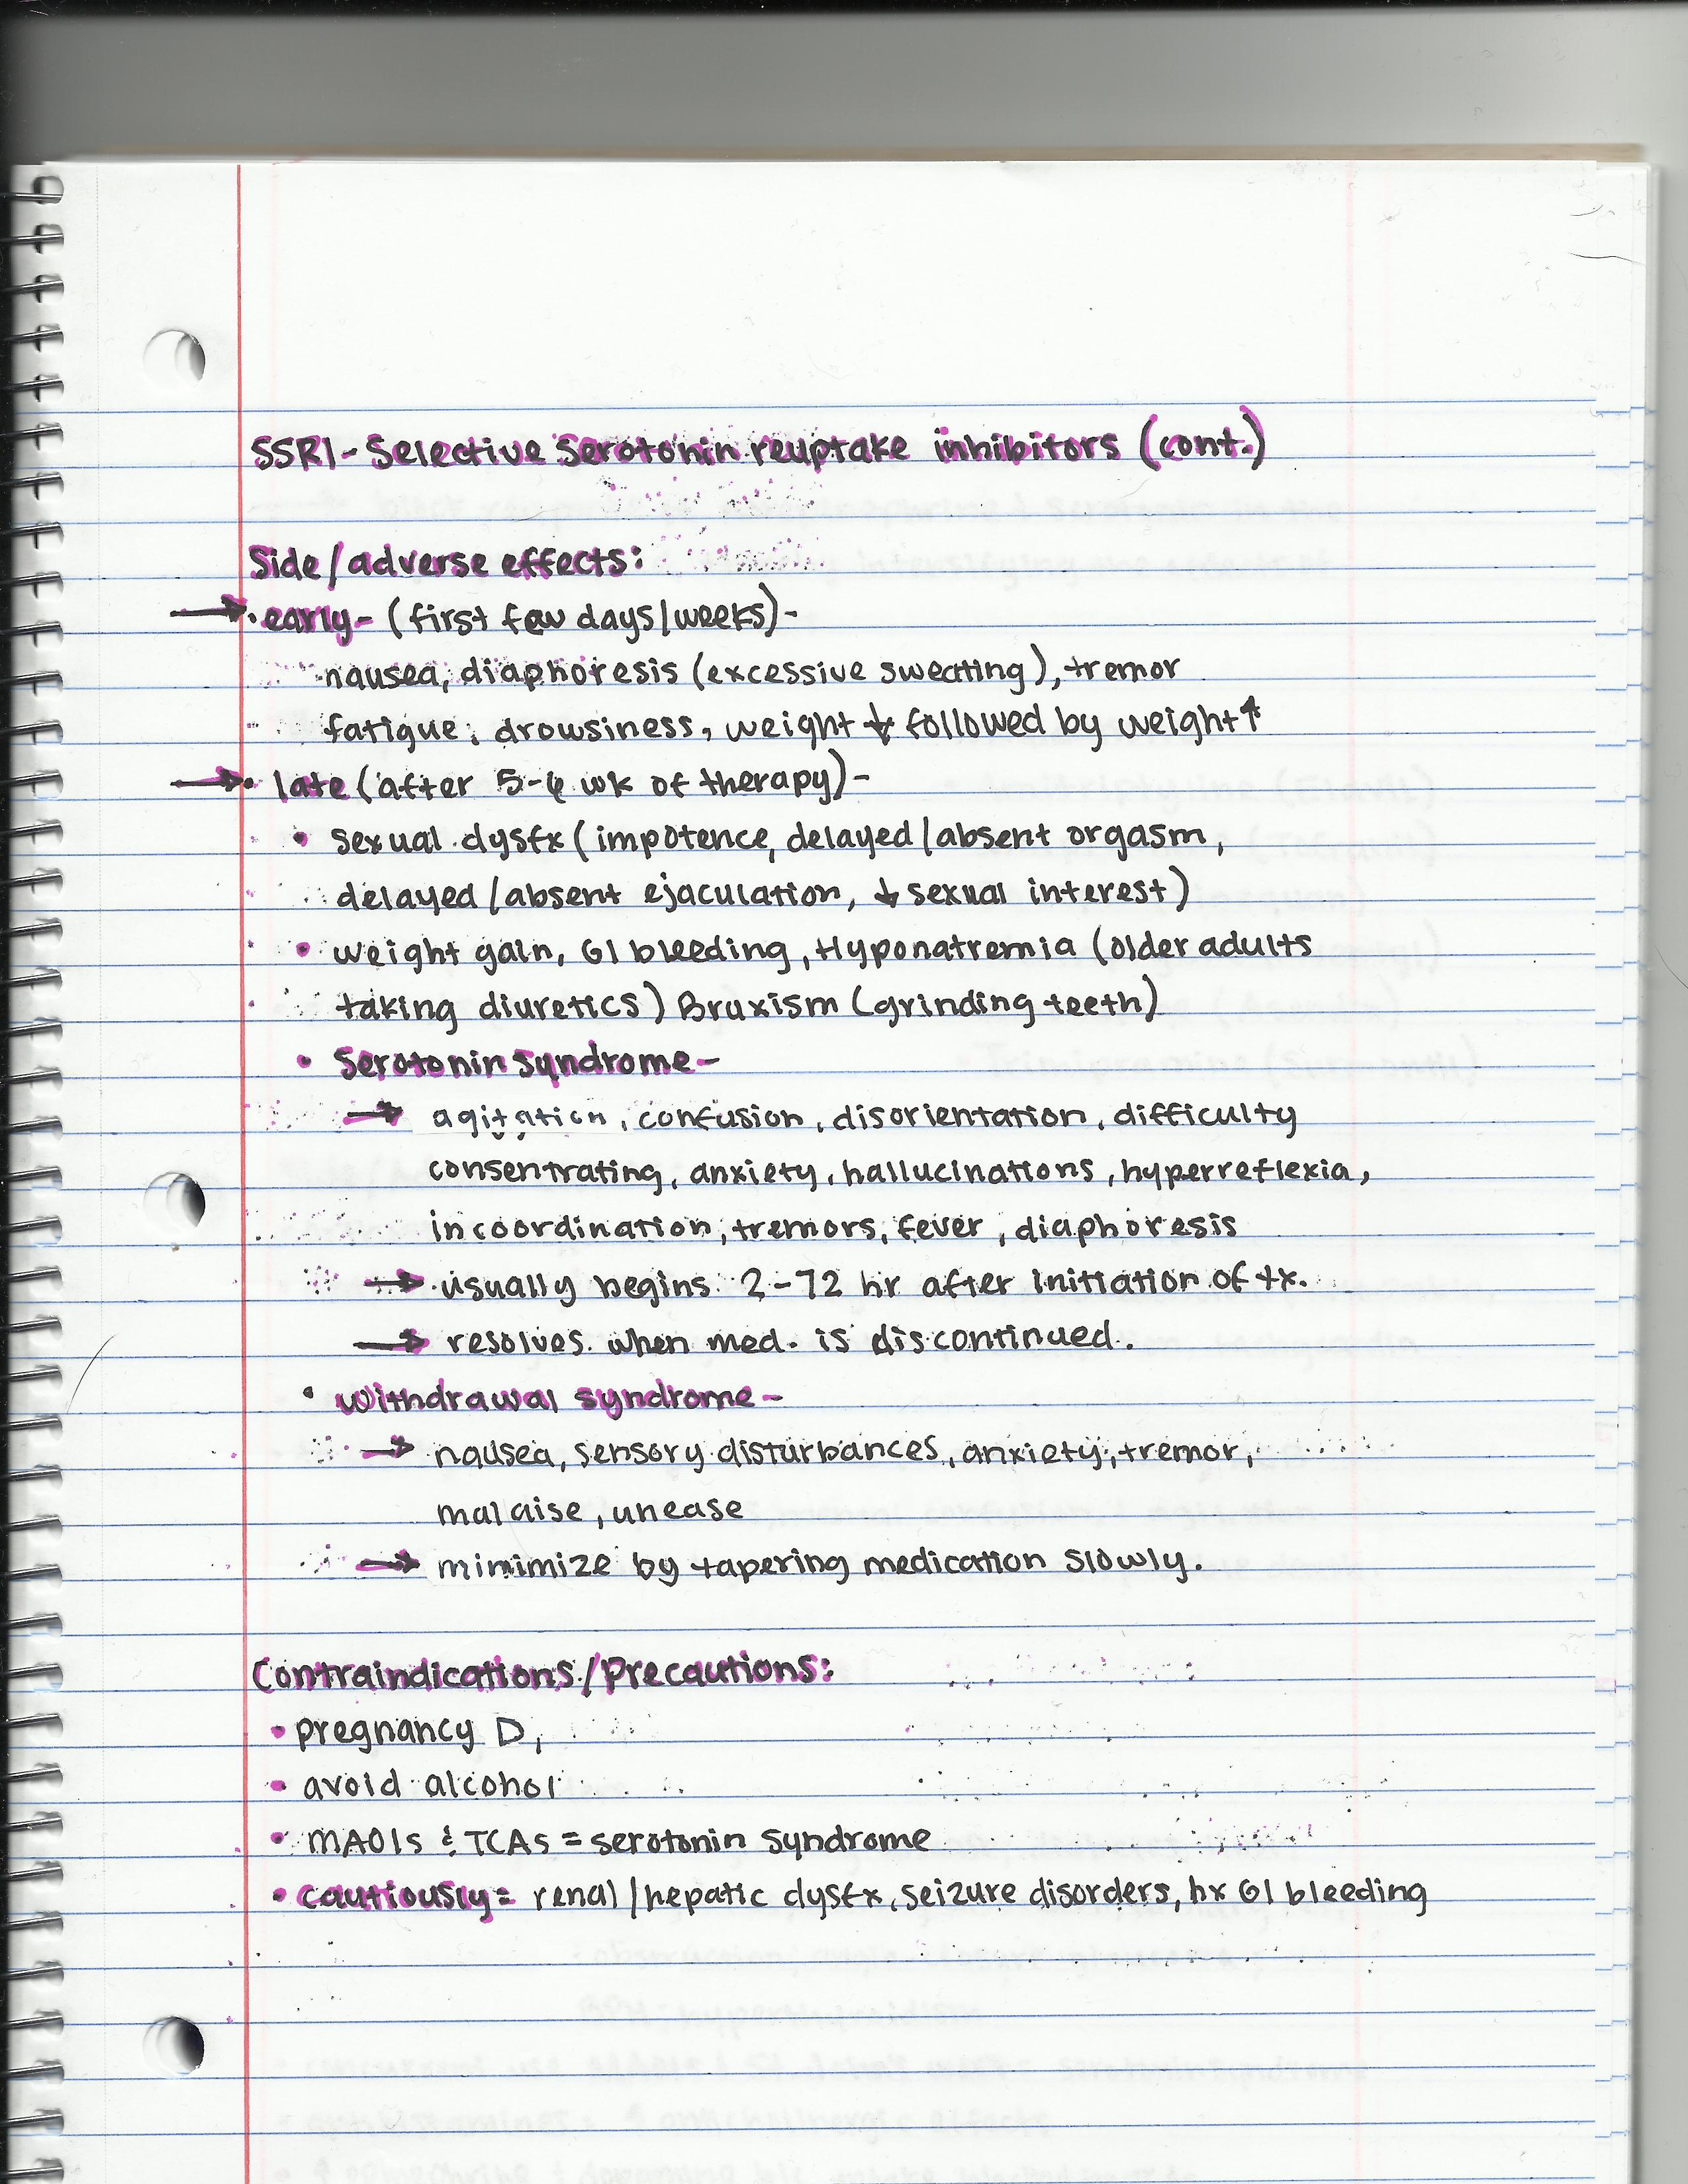 SSRI - Selective Serotonin reuptake inhibitors (cont.)
Side/adverse effects:
→ • early - (first few days/weeks) -
nausea, diaphoresis (excessive sweating), tremor
fatigue, drowsiness, weight ↓ followed by weight ↑
→ • late (after 5-6 wk of therapy) -
• sexual dysfx (impotence, delayed/absent orgasm,
delayed/absent ejaculation, ↓ sexual interest)
• weight gain, GI bleeding, Hyponatremia (older adults
taking diuretics) Bruxism (grinding teeth)
• Serotonin syndrome -
→ agitation, confusion, disorientation, difficulty
consentrating, anxiety, hallucinations, hyperreflexia,
incoordination, tremors, fever, diaphoresis
→ usually begins 2-72 hr after initiation of tx.
→ resolves when med. is discontinued.
• withdrawal syndrome -
→ nausea, sensory disturbances, anxiety, tremor,
malaise, unease
→ minimize by tapering medication slowly.
Contraindications/Precautions:
• pregnancy D,
• avoid alcohol
• MAOIs & TCAs = serotonin syndrome
• cautiously = renal/hepatic dysfx, seizure disorders, hx GI bleeding